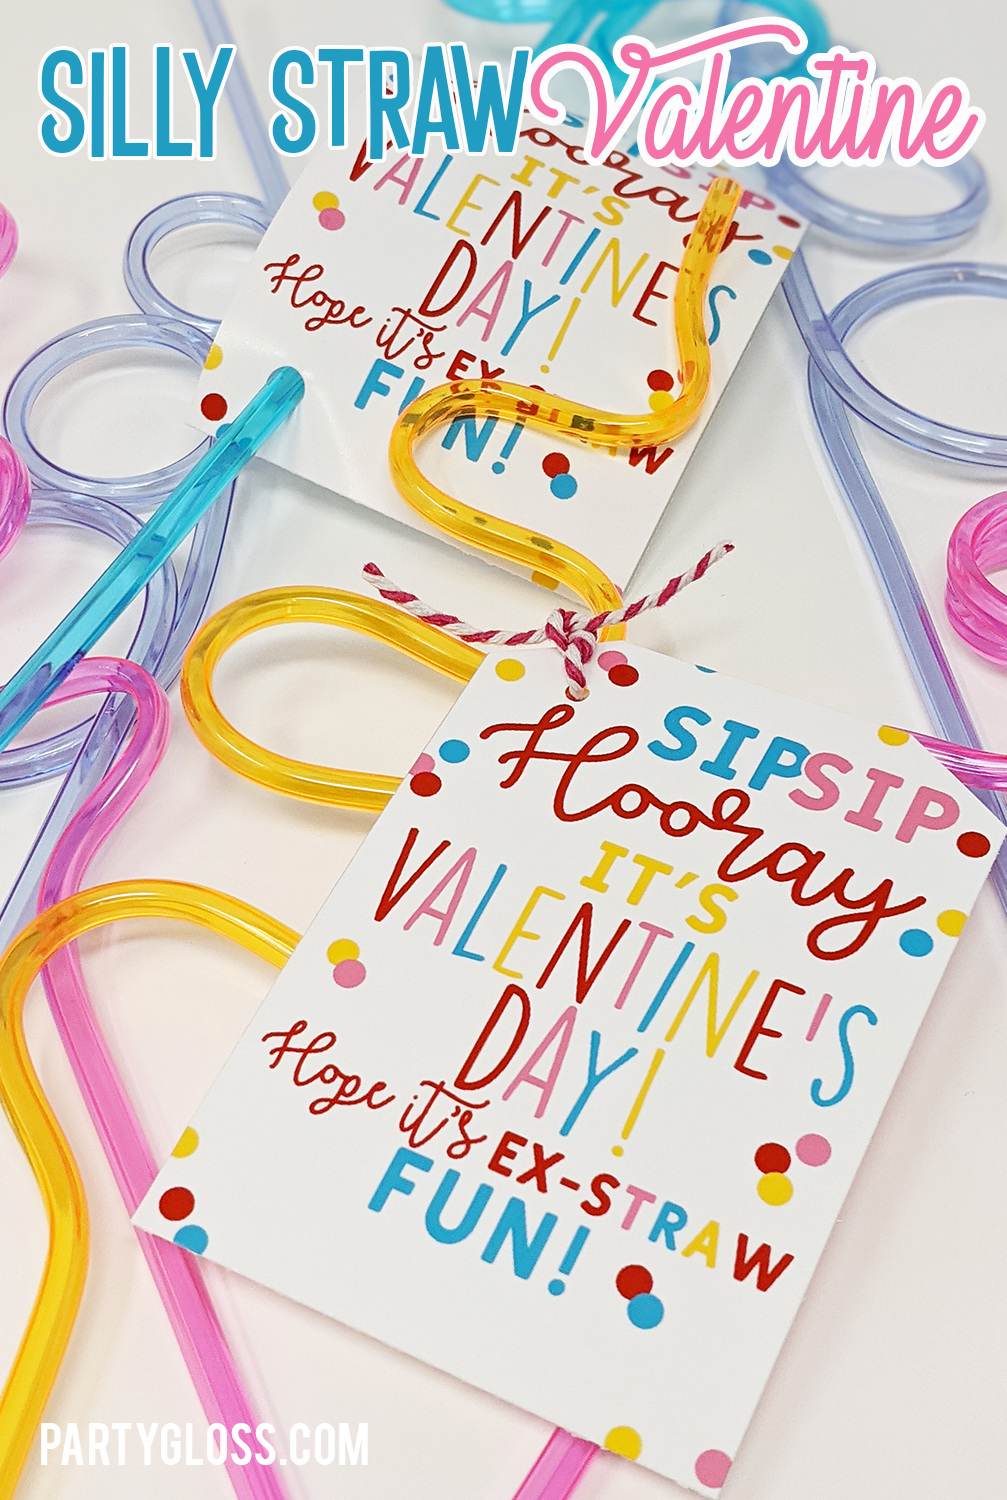 SILLY STRAW Valentine
Hooray
IT'S
VALENTINE'S
DAY!
Hope it's EX-STRAW
FUN!
SIP SIP
Hooray
IT'S
VALENTINE'S
DAY!
Hope it's EX-STRAW
FUN!
PARTYGLOSS.COM